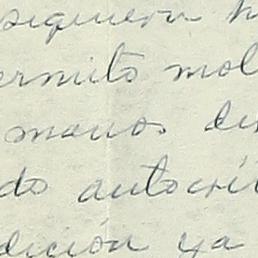 siquiera h
ermito mol
manos. de
do autocrít
dición ya